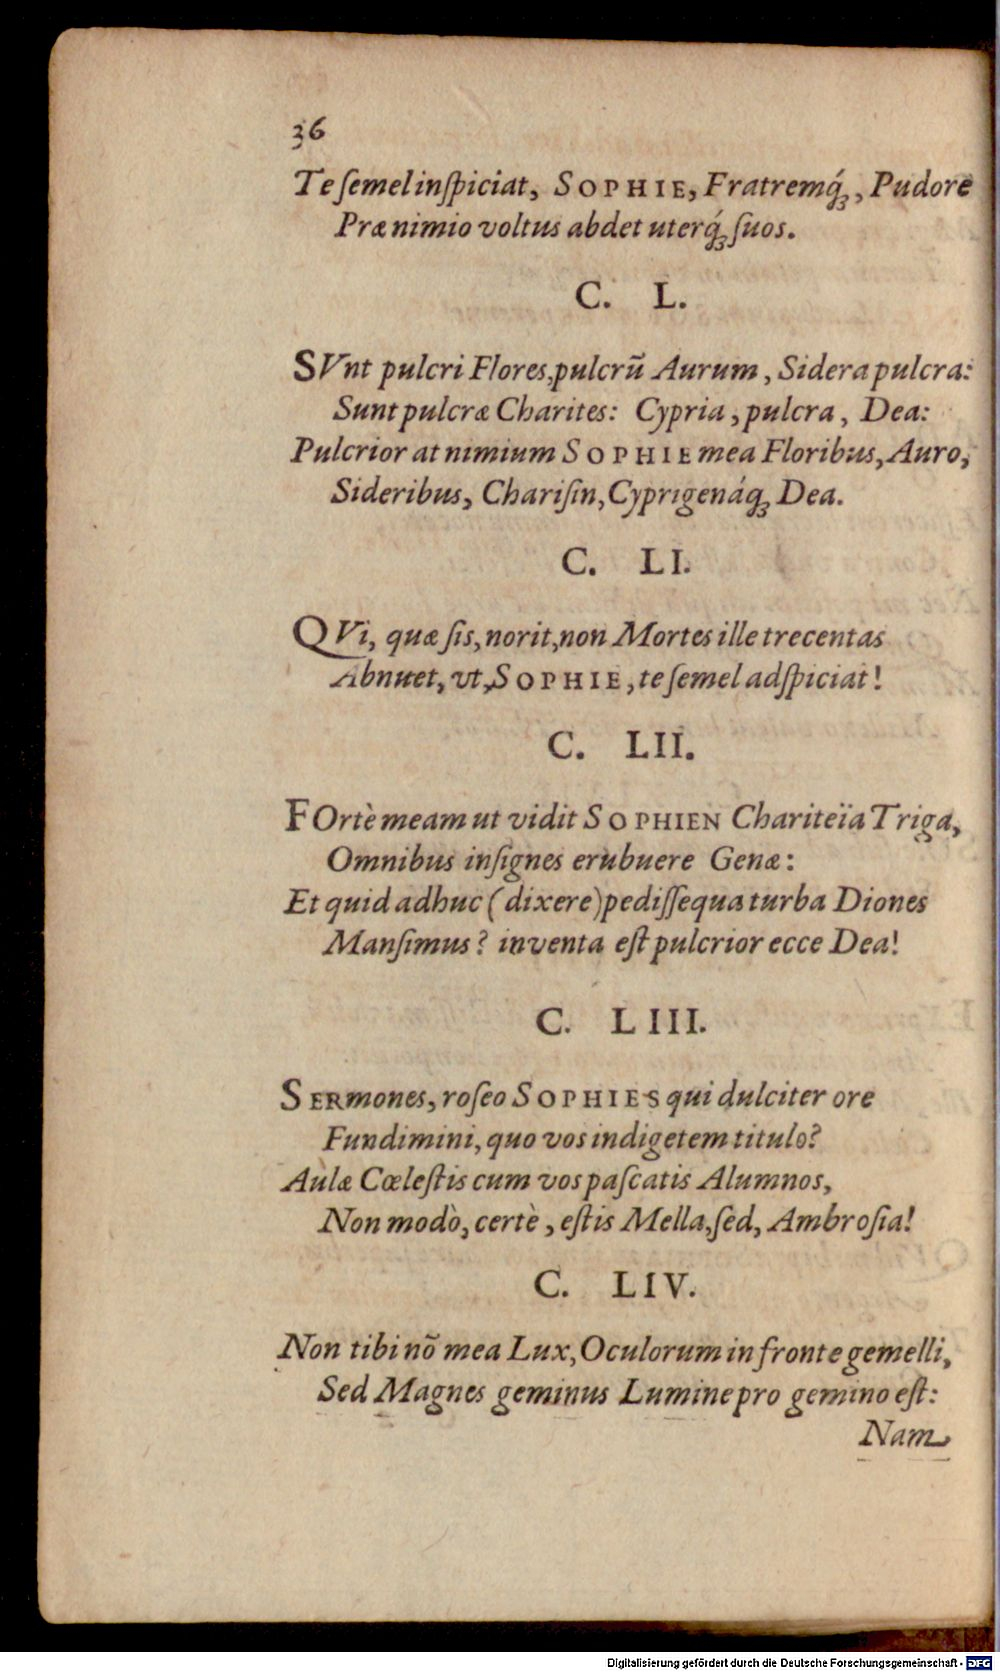 36
Te ſemel inſpiciat, SOPHIE, Fratremq́ꝫ, Pudore
Præ nimio voltus abdet uterq́ꝫ ſuos.
C. L.
SVnt pulcri Flores, pulcrũ Aurum, Sidera pulcra:
Sunt pulcræ Charites: Cypria, pulcra, Dea:
Pulcrior at nimium SOPHIE mea Floribus, Auro,
Sideribus, Chariſin, Cyprigenáqꝫ Dea.
C. LI.
QVi, quæ ſis, norit, non Mortes ille trecentas
Abnuet, vt, SOPHIE, te ſemel adſpiciat!
C. LII.
FOrtè meam ut vidit SOPHIEN Chariteïa Triga,
Omnibus inſignes erubuere Genæ:
Et quid adhuc (dixere) pediſſequa turba Diones
Manſimus? inventa eſt pulcrior ecce Dea!
C. LIII.
SERmones, roſeo SOPHIES qui dulciter ore
Fundimini, quo vos indigetem titulo?
Aulæ Cœleſtis cum vos paſcatis Alumnos,
Non modò, certè, eſtis Mella, ſed, Ambroſia!
C. LIV.
Non tibi nõ mea Lux, Oculorum in fronte gemelli,
Sed Magnes geminus Lumine pro gemino eſt:
Nam
Digitalisierung gefördert durch die Deutsche Forschungsgemeinschaft - DFG